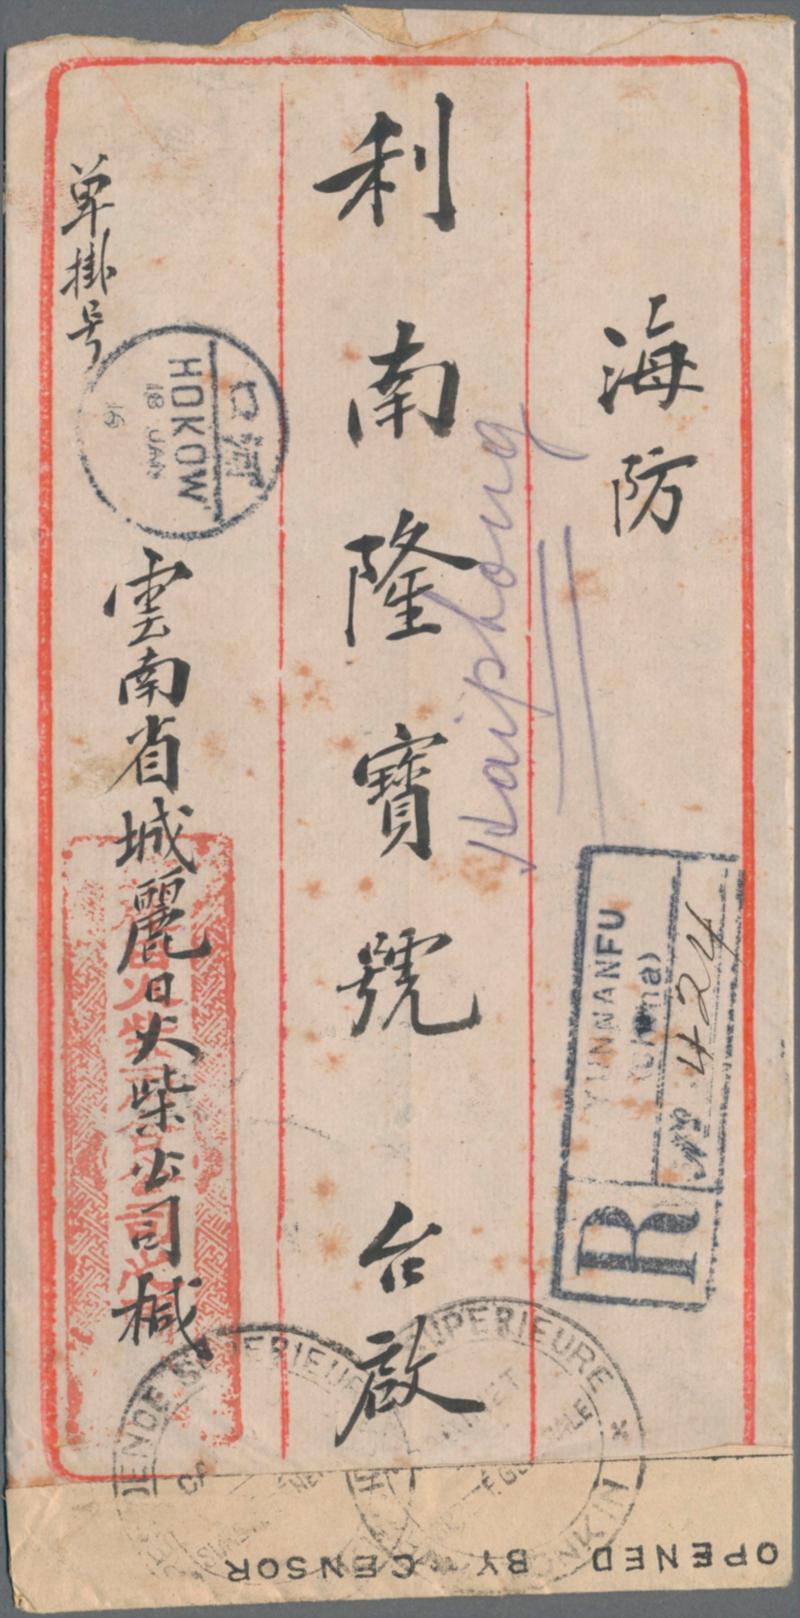 海防
利南隆寶號 台啟
单掛号
雲南省城麗日火柴公司槭
Haiphong
口河
HOKOW
18 JAN
16
YUNNANFU
(China)
R
Nº 424
SUPERIEURE
SUPERIEURE
TONKIN
OPENED BY CENSOR